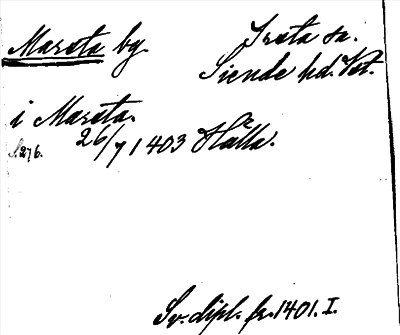 Mareta by. Ireta sn.
Siende hd. Vst.
i Mareta.
S. 276. 26/7 1403 Hälla.
Sv. dipl. fr. 1401. I.